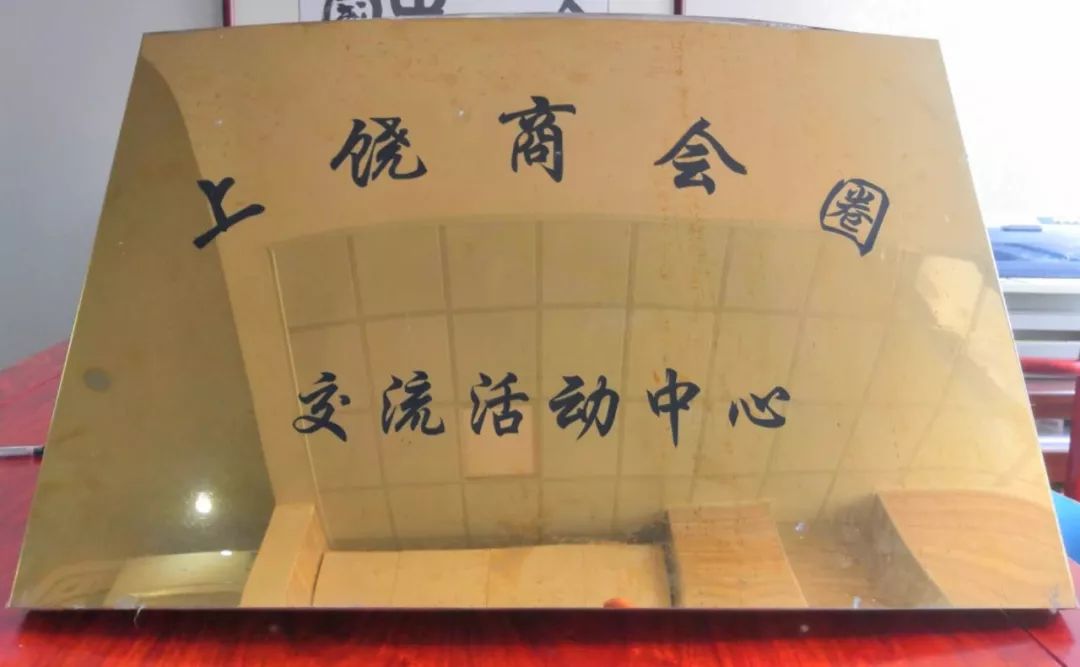 上饶商会圈
交流活动中心